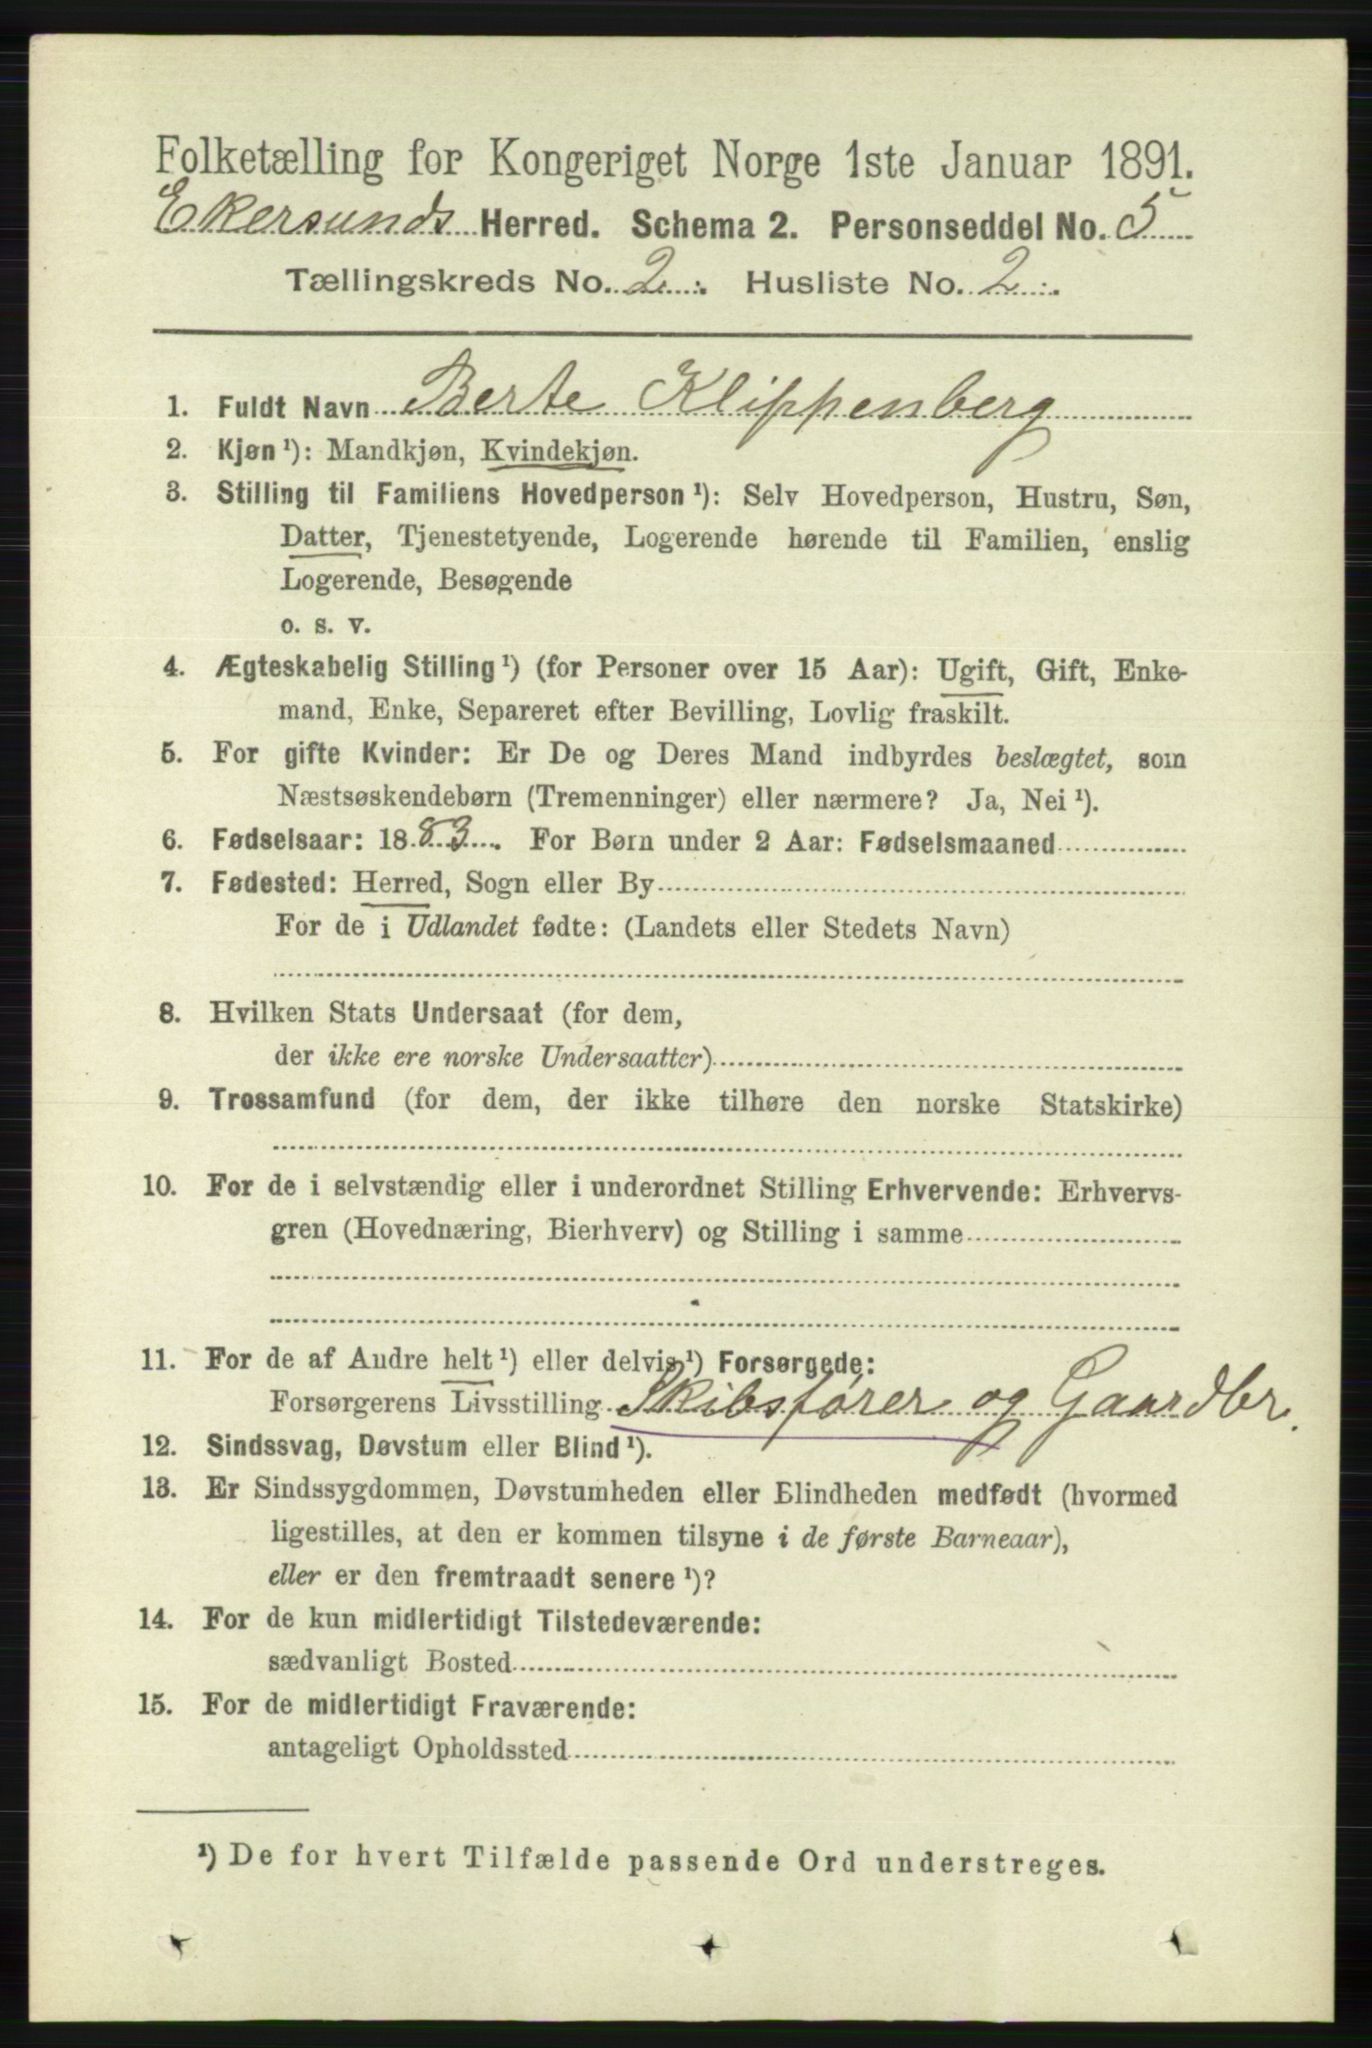 Folketælling for Kongeriget Norge 1ste Januar 1891.
Ekersunds Herred. Schema 2. Personseddel No. 5
Tællingskreds No. 2. Husliste No. 2.
1. Fuldt Navn Berte Klippenberg
2. Kjøn¹): Mandkjøn, Kvindekjøn.
3. Stilling til Familiens Hovedperson¹): Selv Hovedperson, Hustru, Søn,
Datter, Tjenestetyende, Logerende hørende til Familien, enslig
Logerende, Besøgende
o. s. v.
4. Ægteskabelig Stilling¹) (for Personer over 15 Aar): Ugift, Gift, Enke-
mand, Enke, Separeret efter Bevilling, Lovlig fraskilt.
5. For gifte Kvinder: Er De og Deres Mand indbyrdes beslægtet, som
Næstsøskendebørn (Tremenninger) eller nærmere? Ja, Nei¹).
6. Fødselsaar: 1883. For Børn under 2 Aar: Fødselsmaaned
7. Fødested: Herred, Sogn eller By
For de i Udlandet fødte: (Landets eller Stedets Navn)
8. Hvilken Stats Undersaat (for dem,
der ikke ere norske Undersaatter)
9. Trossamfund (for dem, der ikke tilhøre den norske Statskirke)
10. For de i selvstændig eller i underordnet Stilling Erhvervende: Erhvervs-
gren (Hovednæring, Bierhverv) og Stilling i samme
11. For de af Andre helt¹) eller delvis¹) Forsørgede:
Forsørgerens Livsstilling Skibsfører og Gaardbr.
12. Sindssvag, Døvstum eller Blind¹).
13. Er Sindssygdommen, Døvstumheden eller Blindheden medfødt (hvormed
ligestilles, at den er kommen tilsyne i de første Barneaar),
eller er den fremtraadt senere¹)?
14. For de kun midlertidigt Tilstedeværende:
sædvanligt Bosted
15. For de midlertidigt Fraværende:
antageligt Opholdssted
¹) De for hvert Tilfælde passende Ord understreges.